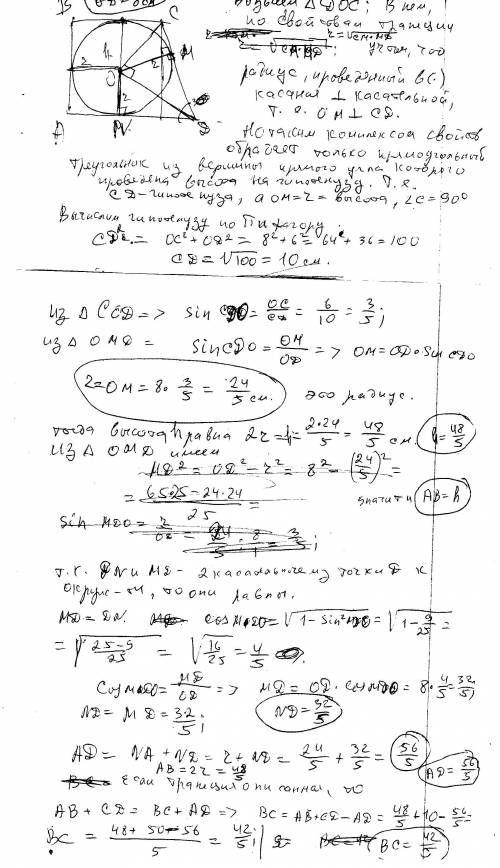 В C
возьмем △DOC; В нем,
по свойствам трапеции
учтем, что
радиус, проведенный в()
касания ⊥ касательной,
т. е. OM ⊥ CD.
обладает только прямоугольный
треугольник из вершины прямого угла которого
проведена высота на гипотенузу. Т.е.
CD - гипотенуза, а OM = r = высота, ∠C = 90°
Вычислим гипотенузу по Пифагору.
CD² = OC² + OD² = 8² + 6² = 64 + 36 = 100
CD = √100 = 10 см.
из △ COD => sin CDO = OC/CD = 6/10 = 3/5;
из △ OMD = sin CDO = OM/OD => OM = OD · sin CDO
r = OM = 8 · 3/5 = 24/5 см. это радиус.
тогда высота h равна 2r = h = 2·24/5 = 48/5 см. h = 48/5
Из △ OMD имеем
MD² = OD² - r² = 8² - (24/5)² =
= 65·25 - 24·24/25 = значит и AB = h
т.к. DN и MD - 2 касательные из точки D к
окруж-ти, то они равны.
MD = DN. cos MDO = √1 - sin² MDO = √1 - 9/25 =
= √25-9/25 = √16/25 = 4/5
cos MDO = MD/OD => MD = OD · cos MDO = 8 · 4/5 = 32/5;
ND = MD = 32/5; ND = 32/5
AD = NA + ND = r + ND = 24/5 + 32/5 = 56/5
AB = 2r = 48/5 AD = 56/5
Если трапеция описанная, то
AB + CD = BC + AD => BC = AB + CD - AD = 48/5 + 10 - 56/5 =
BC = 48 + 50 - 56/5 = 42/5; BC = 42/5